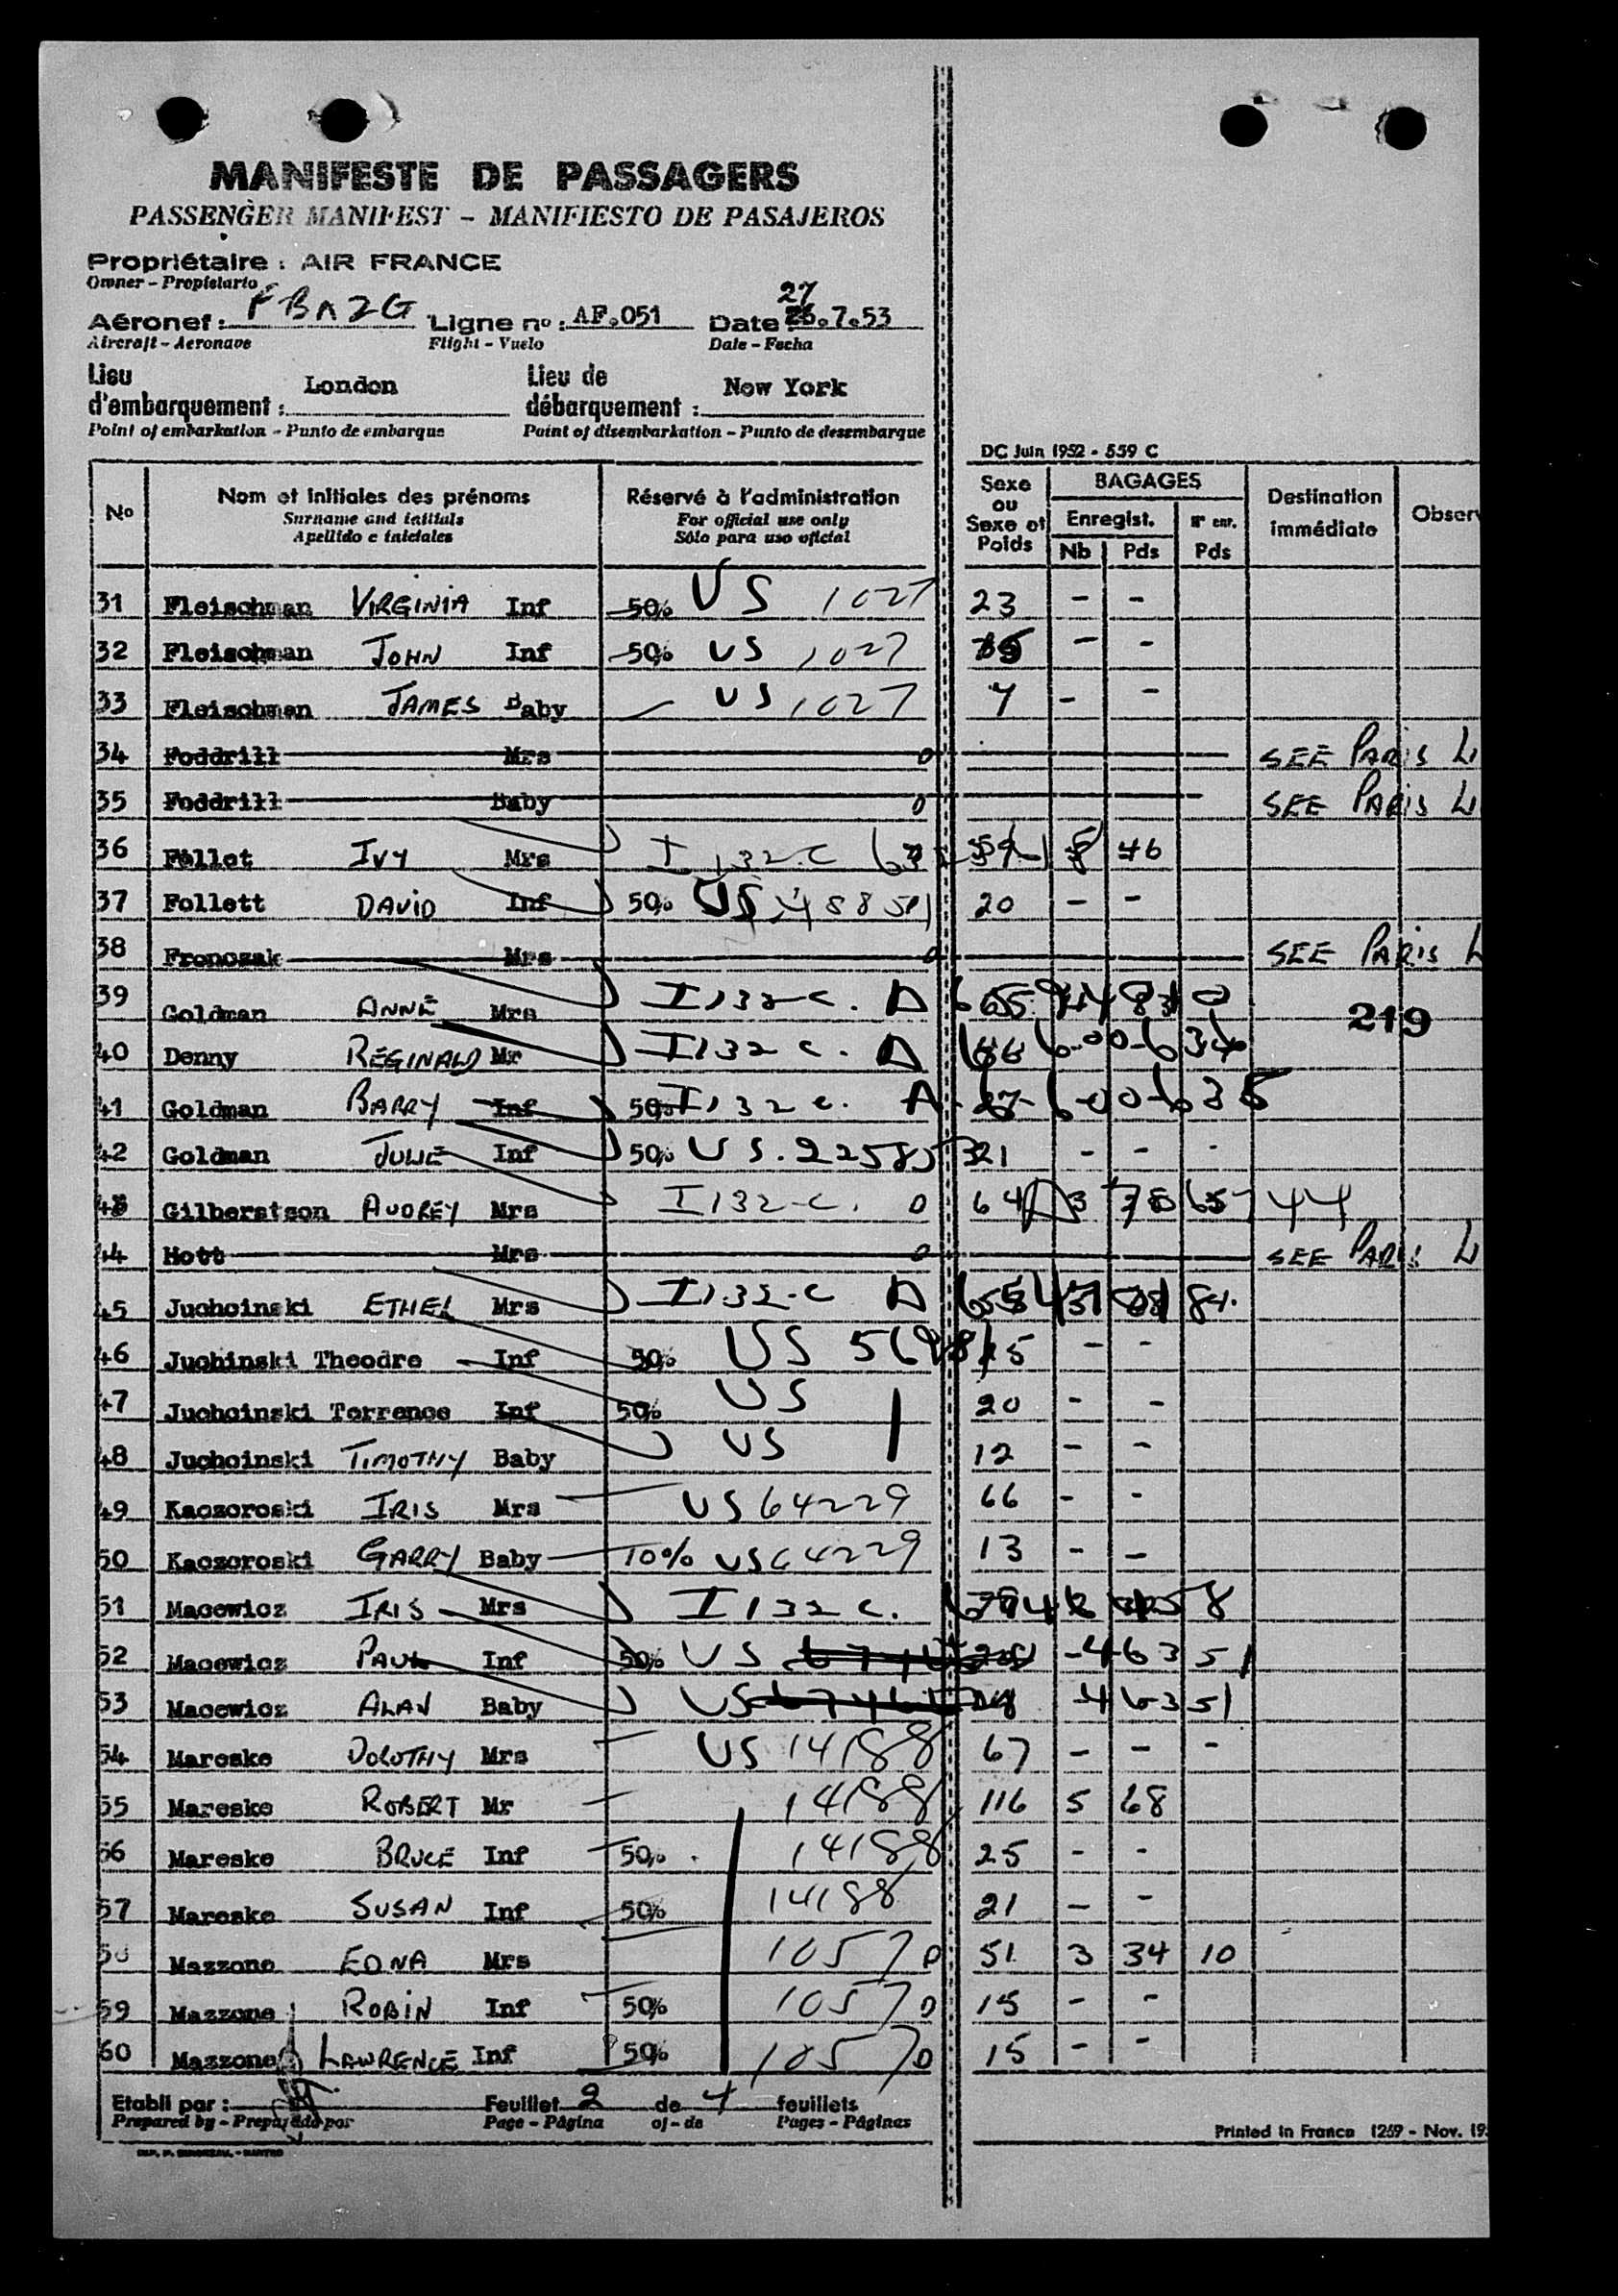 MANIFESTE DE PASSAGERS
PASSENGER MANIFEST - MANIFIESTO DE PASAJEROS
Propriétaire : AIR FRANCE
Owner - Propietario
Aéronef : FBAZG Ligne no : AF.051 Date : 27 .7.53
Aircraft - Aeronave Flight - Vuelo Date - Fecha
Lieu d'embarquement : London Lieu de débarquement : New York
Point of embarkation - Punto de embarque Point of disembarkation - Punto de desembarque
DC Juin 1952 - 559 C
No Nom et initiales des prénoms Réservé à l'administration Sexe ou Sexe et Poids BAGAGES Destination immédiate Observ
Surname and initials For official use only Enregist. N° enr.
Apellido e iniciales Sólo para uso oficial Nb Pds Pds
31 Fleischman VIRGINIA Inf 50% US 1027 23 - -
32 Fleischman JOHN Inf 50% US 1027 - -
33 Fleischman JAMES Baby US 1027 7 - -
34 Foddrill Mrs 0 SEE PARIS LI
35 Foddrill Baby 0 SEE PARIS LI
36 Follet IVY Mrs I 132 C 46
37 Follett DAVID Inf 50% US 20 - -
38 Fronczak Mrs 0 SEE PARIS L
39 Goldman ANNE Mrs I 132 C.
219
40 Denny REGINALD Mr I 132 C. 600634
41 Goldman BARRY Inf 50% I 132 C. 600635
42 Goldman JULIE Inf 50% US. 21 - - -
43 Gilberstson AUDREY Mrs I 132 C. 0 64 3 44
44 Hott Mrs 0 SEE PARIS LI
45 Juchcinski ETHEL Mrs I 132 C
46 Juchinski Theodre Inf 50% US - -
47 Juchcinski Terrence Inf 50% US 20 - -
48 Juchcinski TIMOTHY Baby US 12 - -
49 Kaczoroski IRIS Mrs US 64229 66 - -
50 Kaczoroski GARRY Baby 10% US 64229 13 - -
51 Macewicz IRIS Mrs I 132 C.
52 Macewicz PAUL Inf 50% US 46351
53 Macewicz ALAN Baby US 46351
54 Mareske DOROTHY Mrs US 14188 67 - - -
55 Mareske ROBERT Mr 14188 116 5 68
56 Mareske BRUCE Inf 50% 14188 25 - -
57 Mareske SUSAN Inf 50% 14188 21 - -
58 Mazzone EDNA Mrs 10570 51 3 34 10
59 Mazzone ROBIN Inf 50% 10570 15 - -
60 Mazzone LAWRENCE Inf 50% 10570 15 - -
Etabli par : Feuillet 2 de 4 feuillets
Prepared by - Preparado por Page - Página of - de Pages - Páginas
Printed in France 1269 - Nov. 19